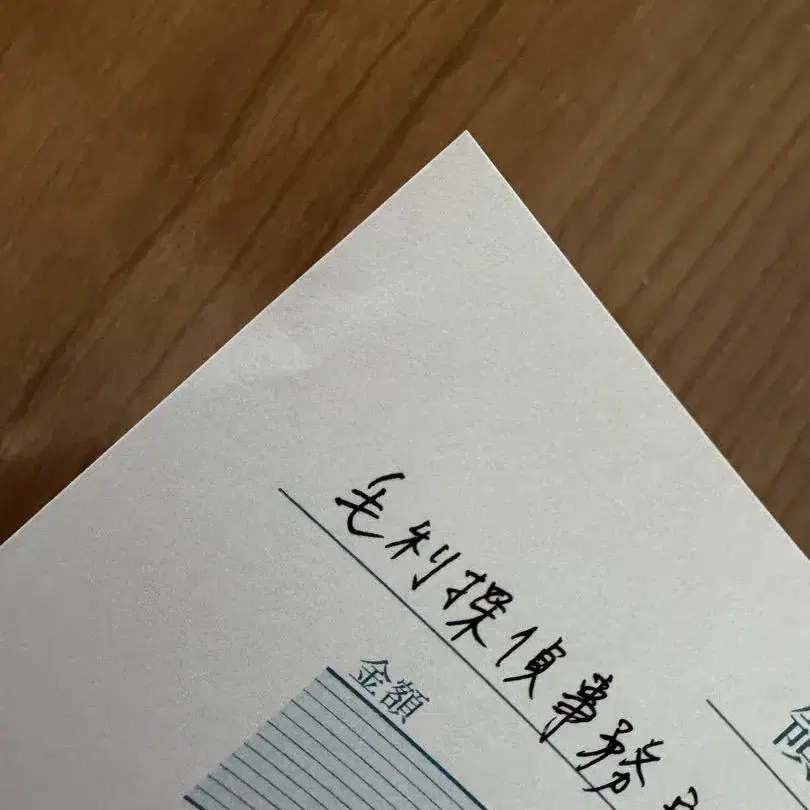 毛利探偵事務
領
金額